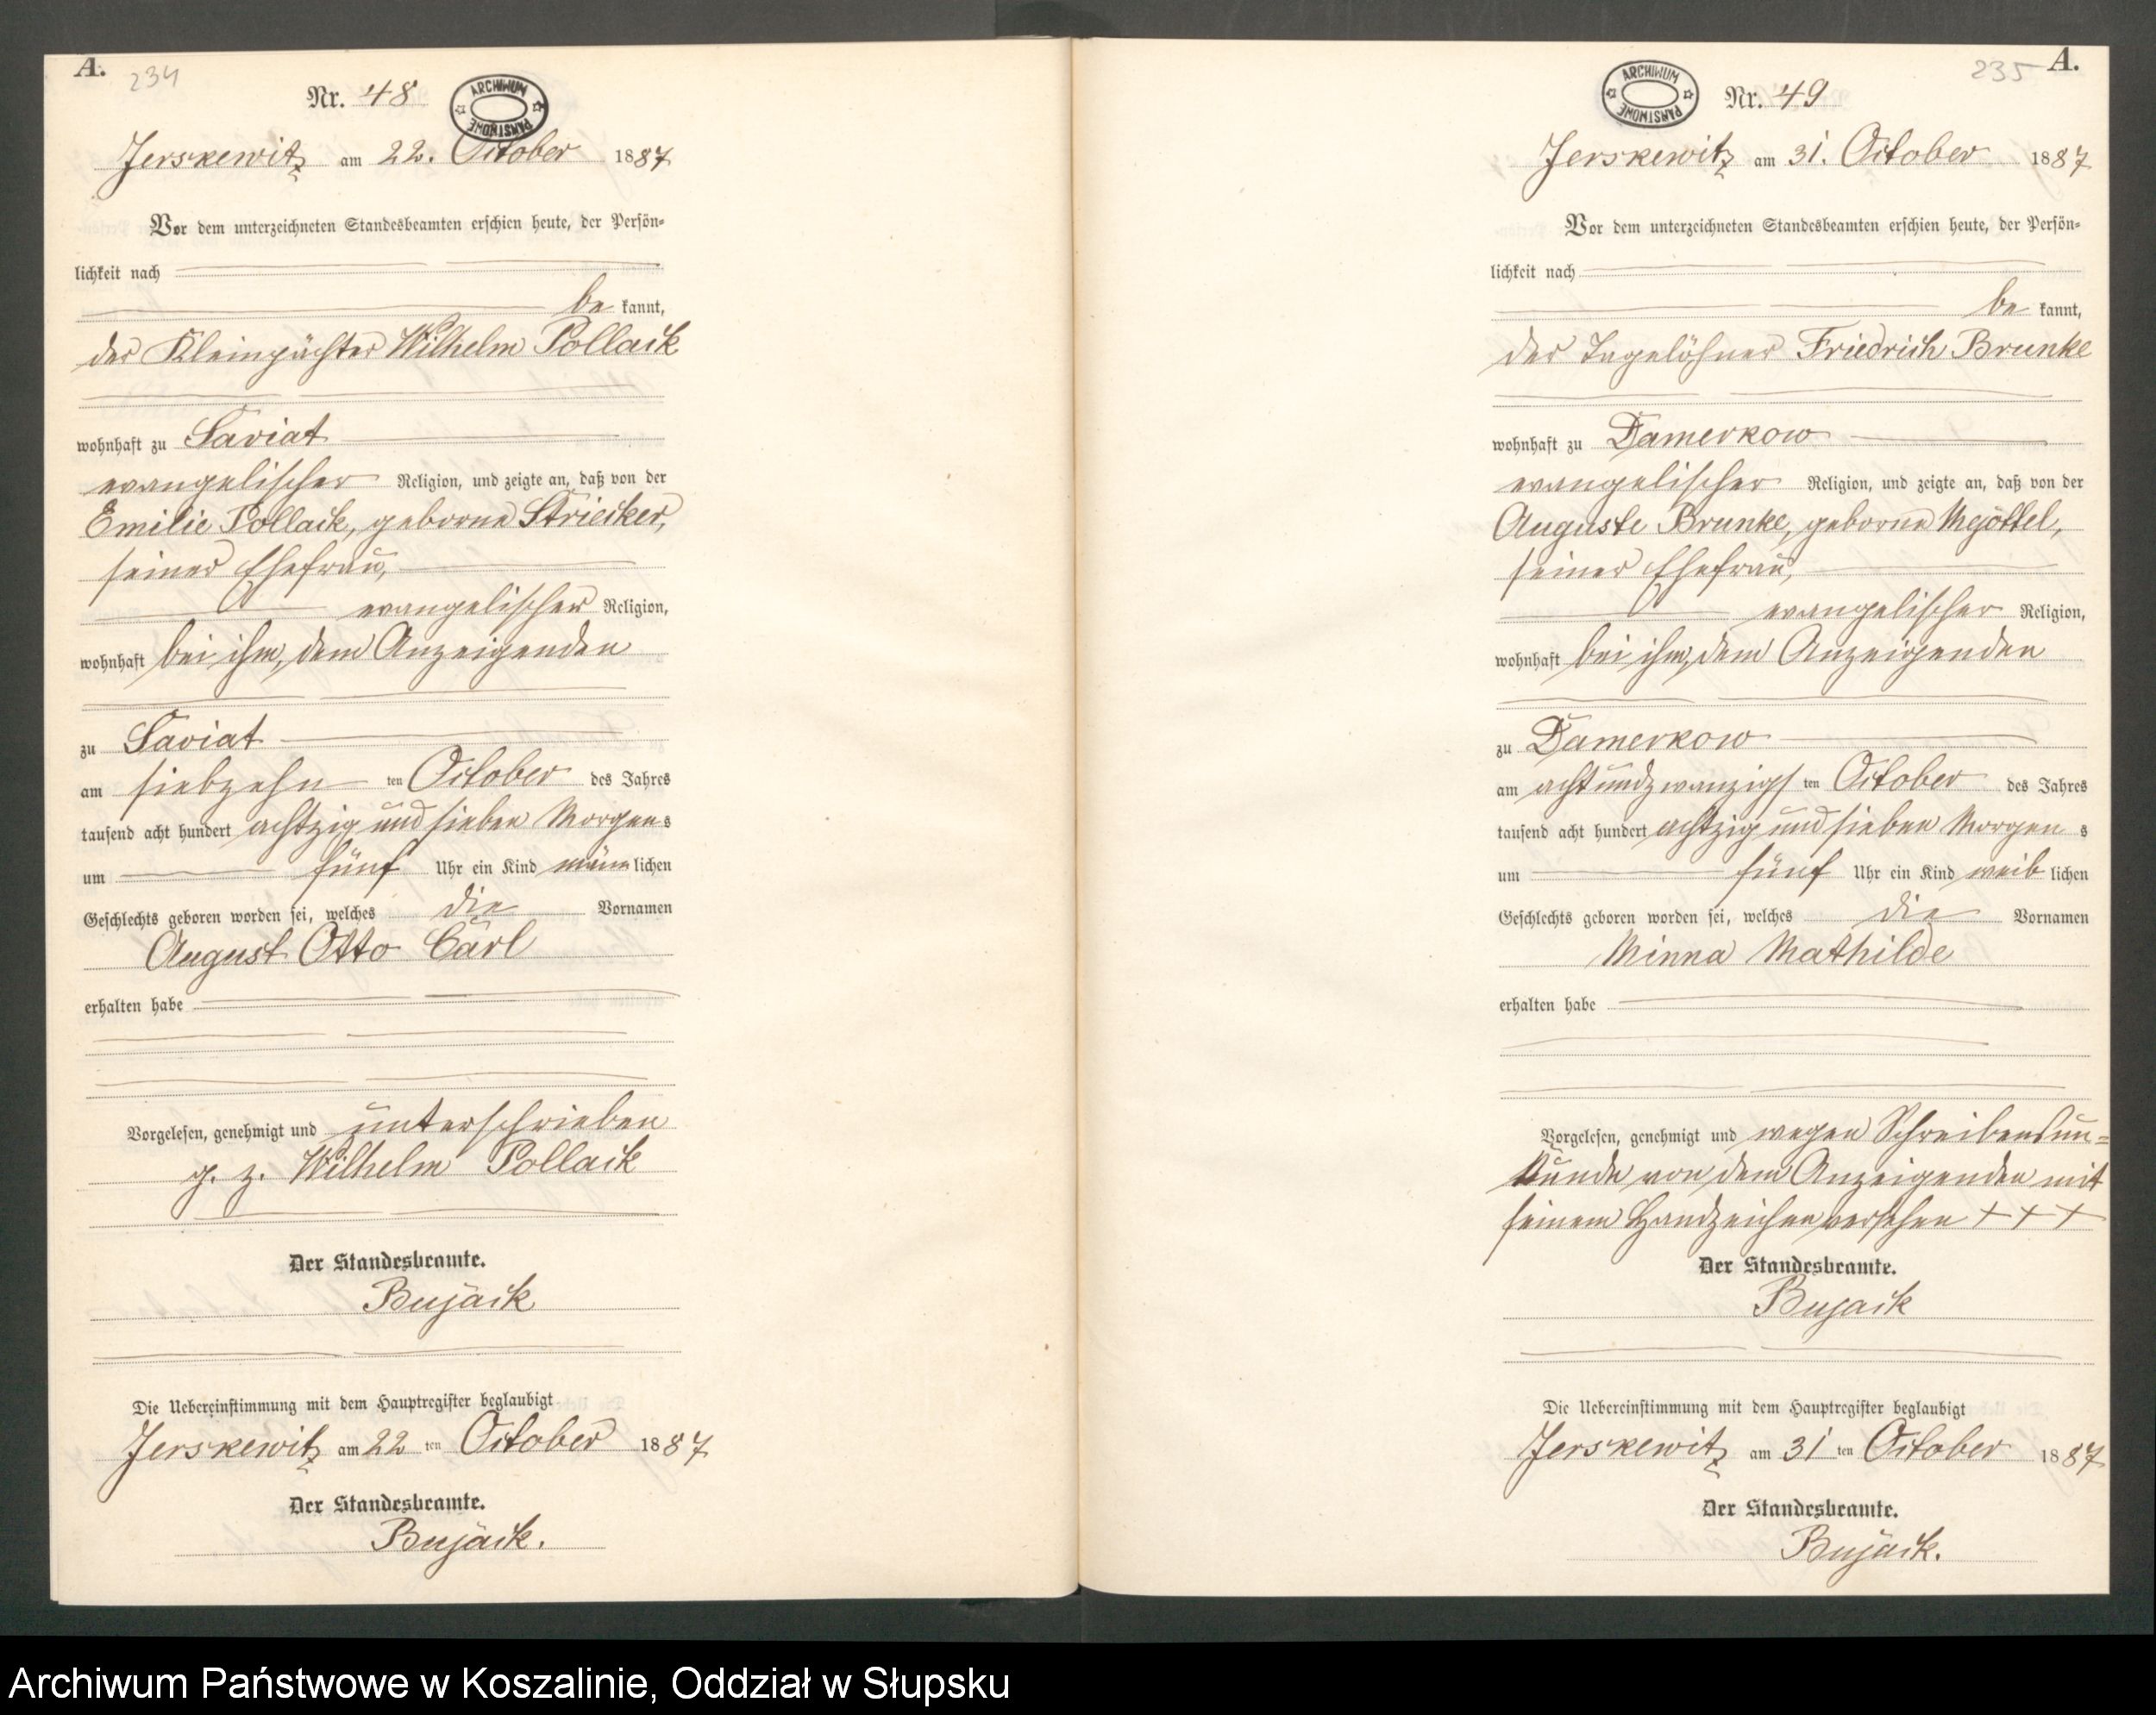 A.
234
Nr. 48
ARCHIWUM PAŃSTWOWE
Jerskewitz am 22. October 1887
Vor dem unterzeichneten Standesbeamten erschien heute, der Persön-
lichkeit nach
be kannt,
der Kleinpächter Wilhelm Pollack
wohnhaft zu Saviat
evangelischer Religion, und zeigte an, daß von der
Emilie Pollack, geborne Striecker,
seiner Ehefrau,
evangelischer Religion,
wohnhaft bei ihm, dem Anzeigenden
zu Saviat
am siebzehn ten October des Jahres
tausend acht hundert achtzig und sieben Morgens
um fünf Uhr ein Kind männlichen
Geschlechts geboren worden sei, welches die Vornamen
August Otto Carl
erhalten habe
Vorgelesen, genehmigt und unterschrieben
g. z. Wilhelm Pollack
Der Standesbeamte.
Bujack
Die Uebereinstimmung mit dem Hauptregister beglaubigt
Jerskewitz am 22 ten October 1887
Der Standesbeamte.
Bujack.
235
A.
ARCHIWUM PAŃSTWOWE
Nr. 49
Jerskewitz am 31. October 1887
Vor dem unterzeichneten Standesbeamten erschien heute, der Persön-
lichkeit nach
be kannt,
der Tagelöhner Friedrich Brunke
wohnhaft zu Damerkow
evangelischer Religion, und zeigte an, daß von der
Auguste Brunke, geborne
seiner Ehefrau,
evangelischer Religion,
wohnhaft bei ihm, dem Anzeigenden
zu Damerkow
am achtundzwanzigsten October des Jahres
tausend acht hundert achtzig und sieben Morgens
um fünf Uhr ein Kind weiblichen
Geschlechts geboren worden sei, welches die Vornamen
Minna Mathilde
erhalten habe
Vorgelesen, genehmigt und wegen Schreibensun-
kunde von dem Anzeigenden mit
seinem Handzeichen versehen + + +
Der Standesbeamte.
Bujack
Die Uebereinstimmung mit dem Hauptregister beglaubigt
Jerskewitz am 31 ten October 1887
Der Standesbeamte.
Bujack.
Archiwum Państwowe w Koszalinie, Oddział w Słupsku